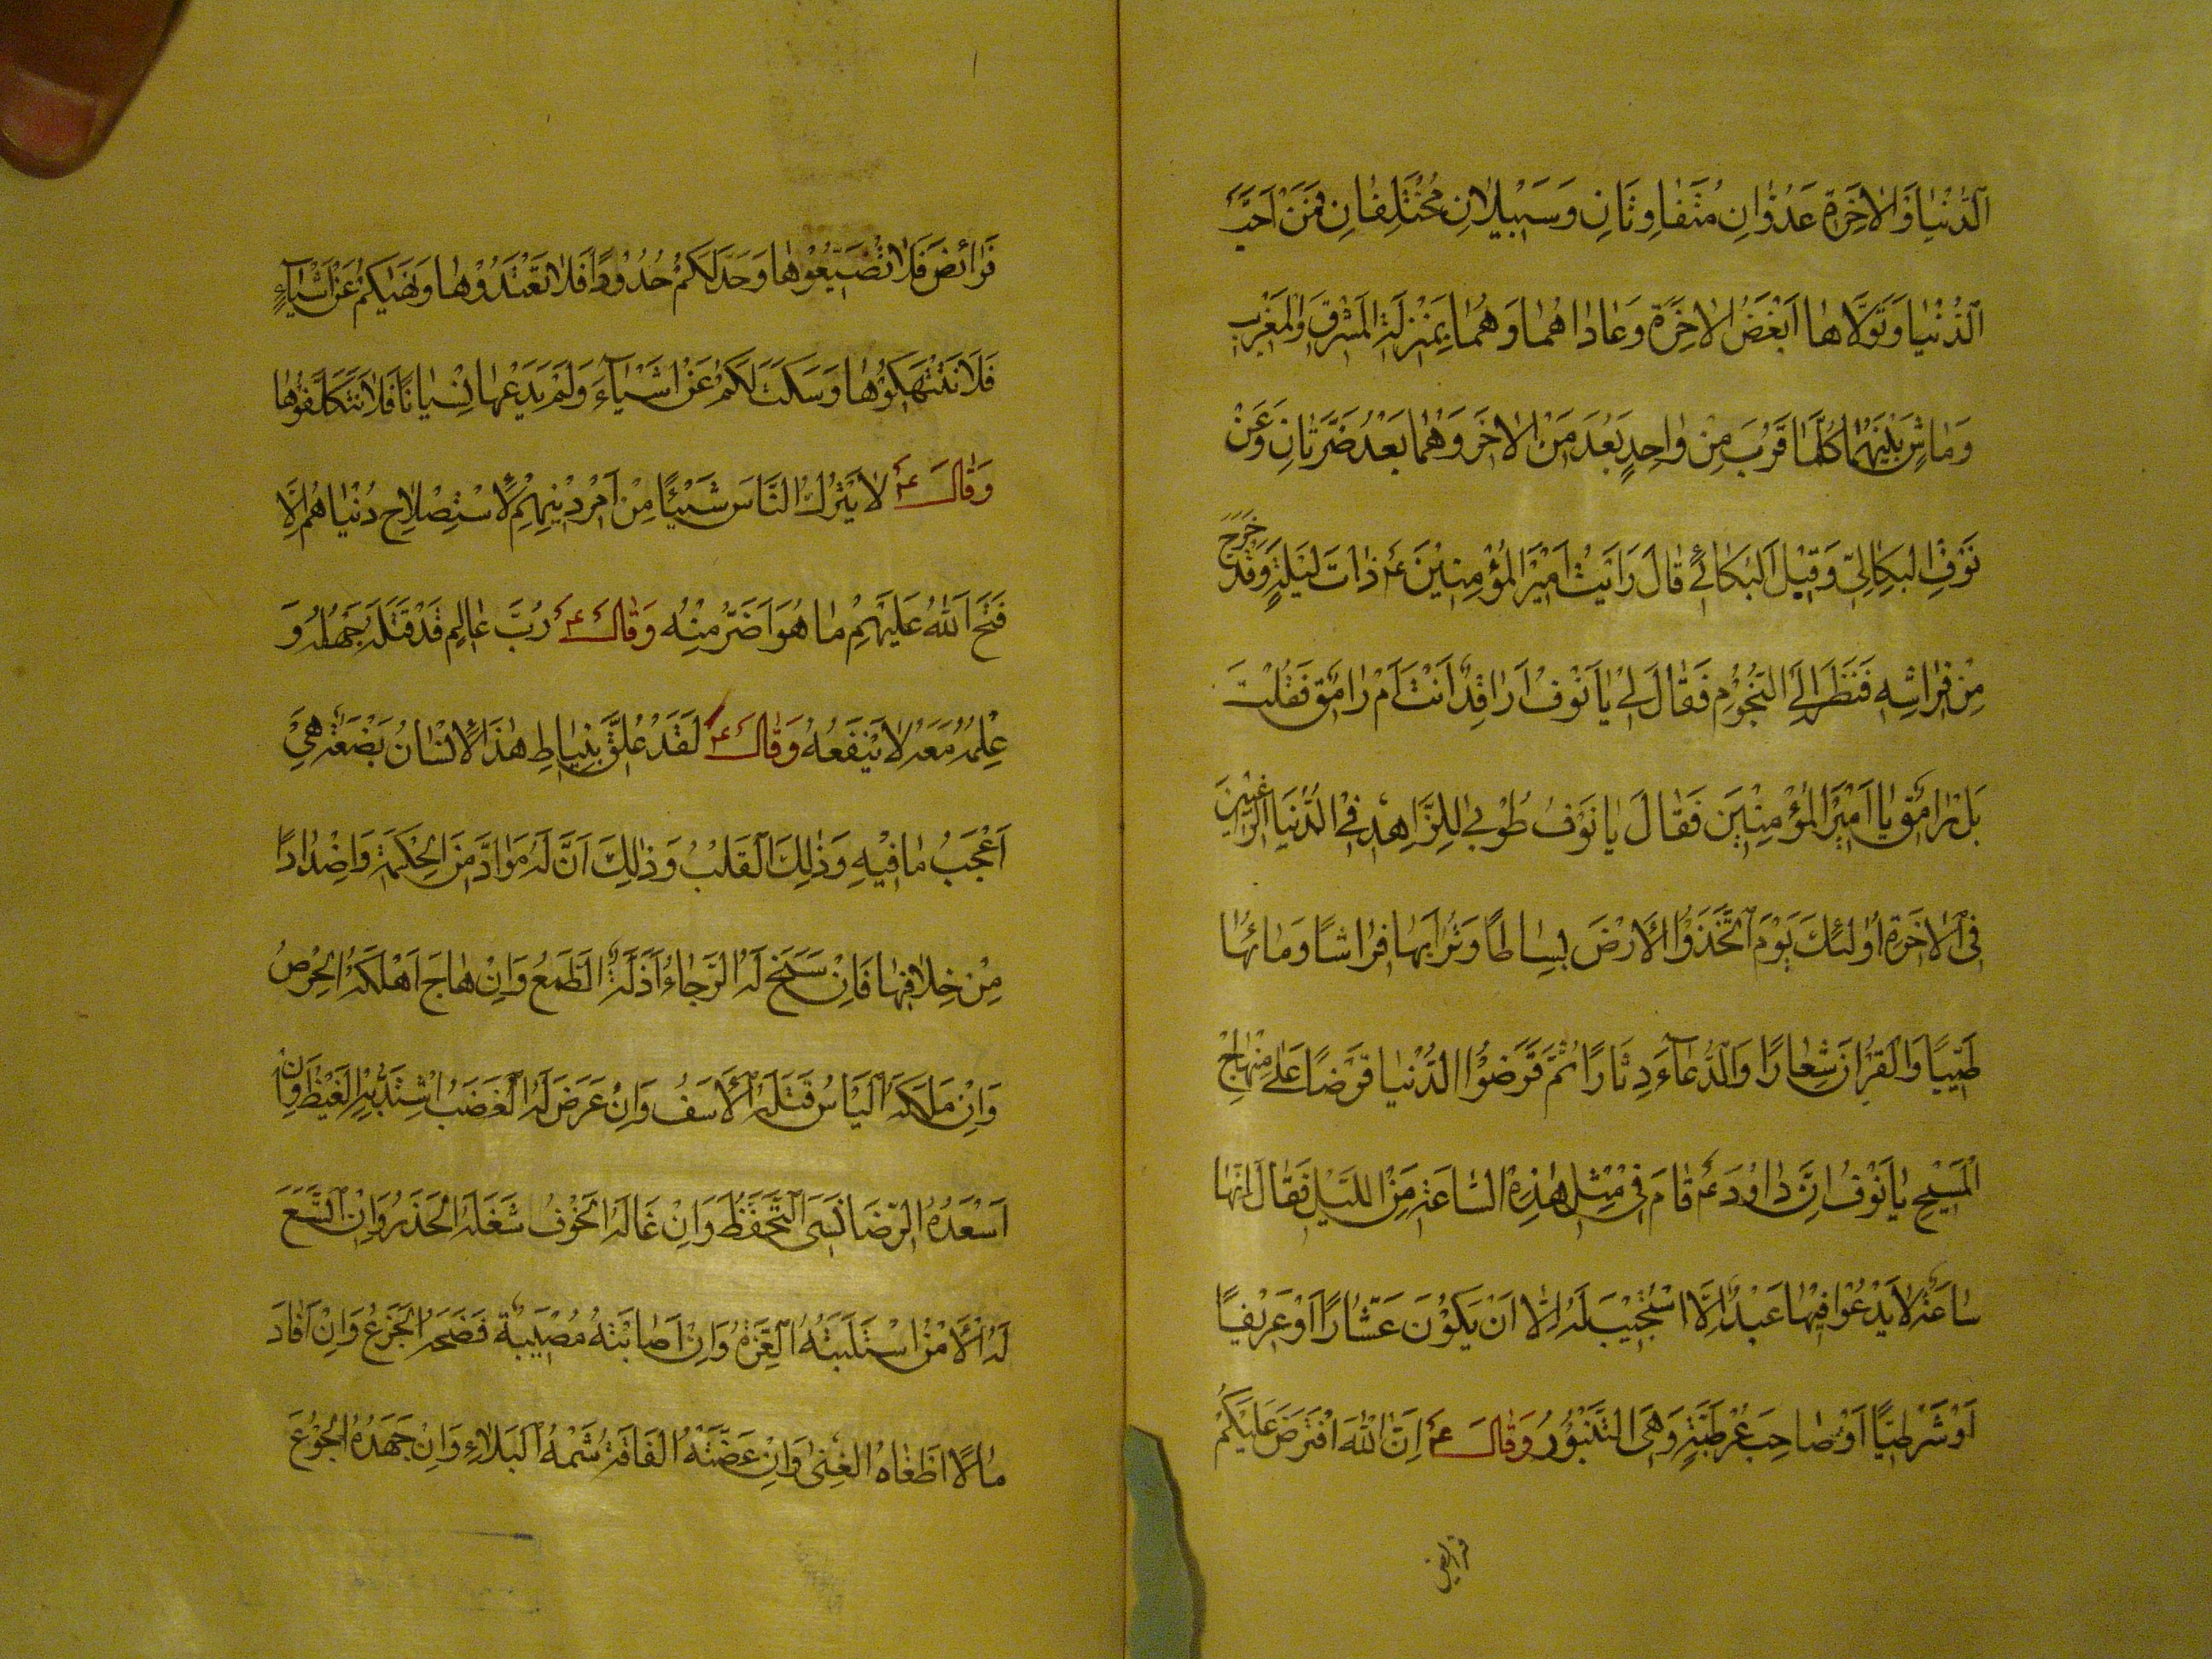 اَلدُّنْيَا وَالاخِرَةِ عَدُوَّانِ مُتَفَاوِتَانِ وَسَبِيلانِ مُخْتَلِفَانِ فَمَنْ اَحَبَّ
الدُّنْيَا وَتَوَلَّاهَا اَبْغَضَ الاخِرَةَ وَعَادَاهُمَا وَهُمَا بِمَنْزِلَةِ الْمَشْرِقِ وَالْمَغْرِبِ
وَمَاشٍ بَيْنَهُمَا كُلَّمَا قَرُبَ مِنْ وَاحِدٍ بَعُدَ مِنَ الاخَرِ وَهُمَا بَعْدُ ضَرَّتَانِ وَعَنْ
نَوْفِ الْبِكَالِيّ وَقِيلَ الْبَكَائِيّ قَالَ رَاَيْتُ اَمِيرَ الْمُؤْمِنِينَ ع ذَاتَ لَيْلَةٍ وَقَدْ خَرَجَ
مِنْ فِرَاشِهِ فَنَظَرَ اِلَى النُّجُومِ فَقَالَ لِي يَا نَوْفُ اَرَاقِدٌ اَنْتَ اَمْ رَامِقٌ فَقُلْتُ
بَلْ رَامِقٌ يَا اَمِيرَ الْمُؤْمِنِينَ فَقَالَ يَا نَوْفُ طُوبَى لِلزَّاهِدِ فِي الدُّنْيَا الرَّاغِبِينَ
فِي الاخِرَةِ اُولئِكَ يَوْمَ اتَّخَذُوا الْاَرْضَ بِسَاطًا وَتُرَابَهَا فِرَاشًا وَمَائَهَا
طَيِّبًا وَالْقُرْانَ شِعَارًا وَالدُّعَآءَ دِثَارًا ثُمَّ قَرَضُوا الدُّنْيَا قَرْضًا عَلَى مِنْهَاجِ
الْمَسِيحِ يَا نَوْفُ اِنَّ دَاوُدَ ع قَامَ فِي مِثْلِ هٰذِهِ السَّاعَةِ مِنَ اللَّيْلِ فَقَالَ اِنَّهَا
سَاعَةٌ لَا يَدْعُوا فِيهَا عَبْدٌ اِلَّا اسْتُجِيبَ لَهُ اِلَّا اَنْ يَكُونَ عَشَّارًا اَوْ عَرِيفًا
اَوْ شُرْطِيًّا اَوْ صَاحِبَ عَرْطَبَةٍ وَهِيَ الطَّنْبُورُ وَقَالَ ع اِنَّ اللهَ افْتَرَضَ عَلَيْكُمْ
فرائض
فَرَائِضَ فَلَا تُضَيِّعُوهَا وَحَدَّ لَكُمْ حُدُودًا فَلَا تَعْتَدُوهَا وَنَهَيكُمْ عَنْ اَشْيَآءٍ
فَلَا تَنْتَهِكُوهَا وَسَكَتَ لَكُمْ عَنْ اَشْيَآءَ وَلَمْ يَدَعْهَا نِسْيَانًا فَلَا تَتَكَلَّفُوهَا
وَقَالَ ع لَا يَتْرُكُ النَّاسُ شَيْئًا مِنْ اَمْرِ دِينِهِمْ لِاسْتِصْلَاحِ دُنْيَاهُمْ اِلَّا
فَتَحَ اللهُ عَلَيْهِمْ مَا هُوَ اَضَرُّ مِنْهُ وَقَالَ ع رُبَّ عَالِمٍ قَدْ قَتَلَهُ جَهْلُهُ وَ
عِلْمُهُ مَعَهُ لَا يَنْفَعُهُ وَقَالَ ع لَقَدْ عُلِّقَ بِنِيَاطِ هٰذَا الْاِنْسَانِ بَضْعَةٌ هِيَ
اَعْجَبُ مَا فِيهِ وَذٰلِكَ الْقَلْبُ وَذٰلِكَ اَنَّ لَهُ مَوَادَّ مِنَ الْحِكْمَةِ وَاَضْدَادًا
مِنْ خِلَافِهَا فَاِنْ سَنَحَ لَهُ الرَّجَاءُ اَذَلَّهُ الطَّمَعُ وَاِنْ هَاجَ اَهْلَكَهُ الْحِرْصُ
وَاِنْ مَلَكَهُ الْيَاْسُ قَتَلَهُ الْاَسَفُ وَاِنْ عَرَضَ لَهُ الْغَضَبُ اشْتَدَّ بِهِ الْغَيْظُ وَاِنْ
اَسْعَدَهُ الرِّضَا نَسِيَ التَّحَفُّظَ وَاِنْ غَالَهُ الْخَوْفُ شَغَلَهُ الْحَذَرُ وَاِنِ اتَّسَعَ
لَهُ الْاَمْنُ اسْتَلَبَتْهُ الْغِرَّةُ وَاِنْ اَصَابَتْهُ مُصِيبَةٌ فَضَحَهُ الْجَزَعُ وَاِنْ اَفَادَ
مَالًا اَطْغَاهُ الْغِنَى وَاِنْ عَضَّتْهُ الْفَاقَةُ الْبَلَاءُ وَاِنْ جَهَدَهُ الْجُوعُ